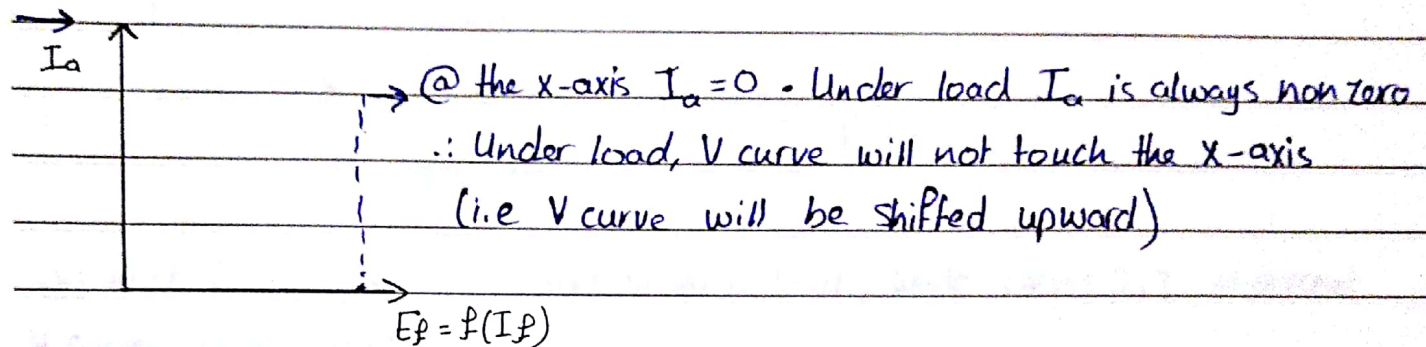 Ia
@ the x-axis Ia=0 . Under load Ia is always non zero
∴ Under load, V curve will not touch the x-axis
(i.e V curve will be shifted upward)
Ef = f(If)